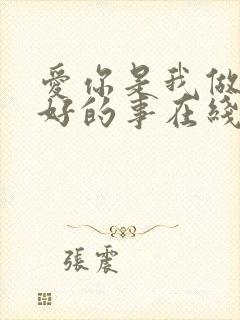 愛你是我做
好的事在綫
張震